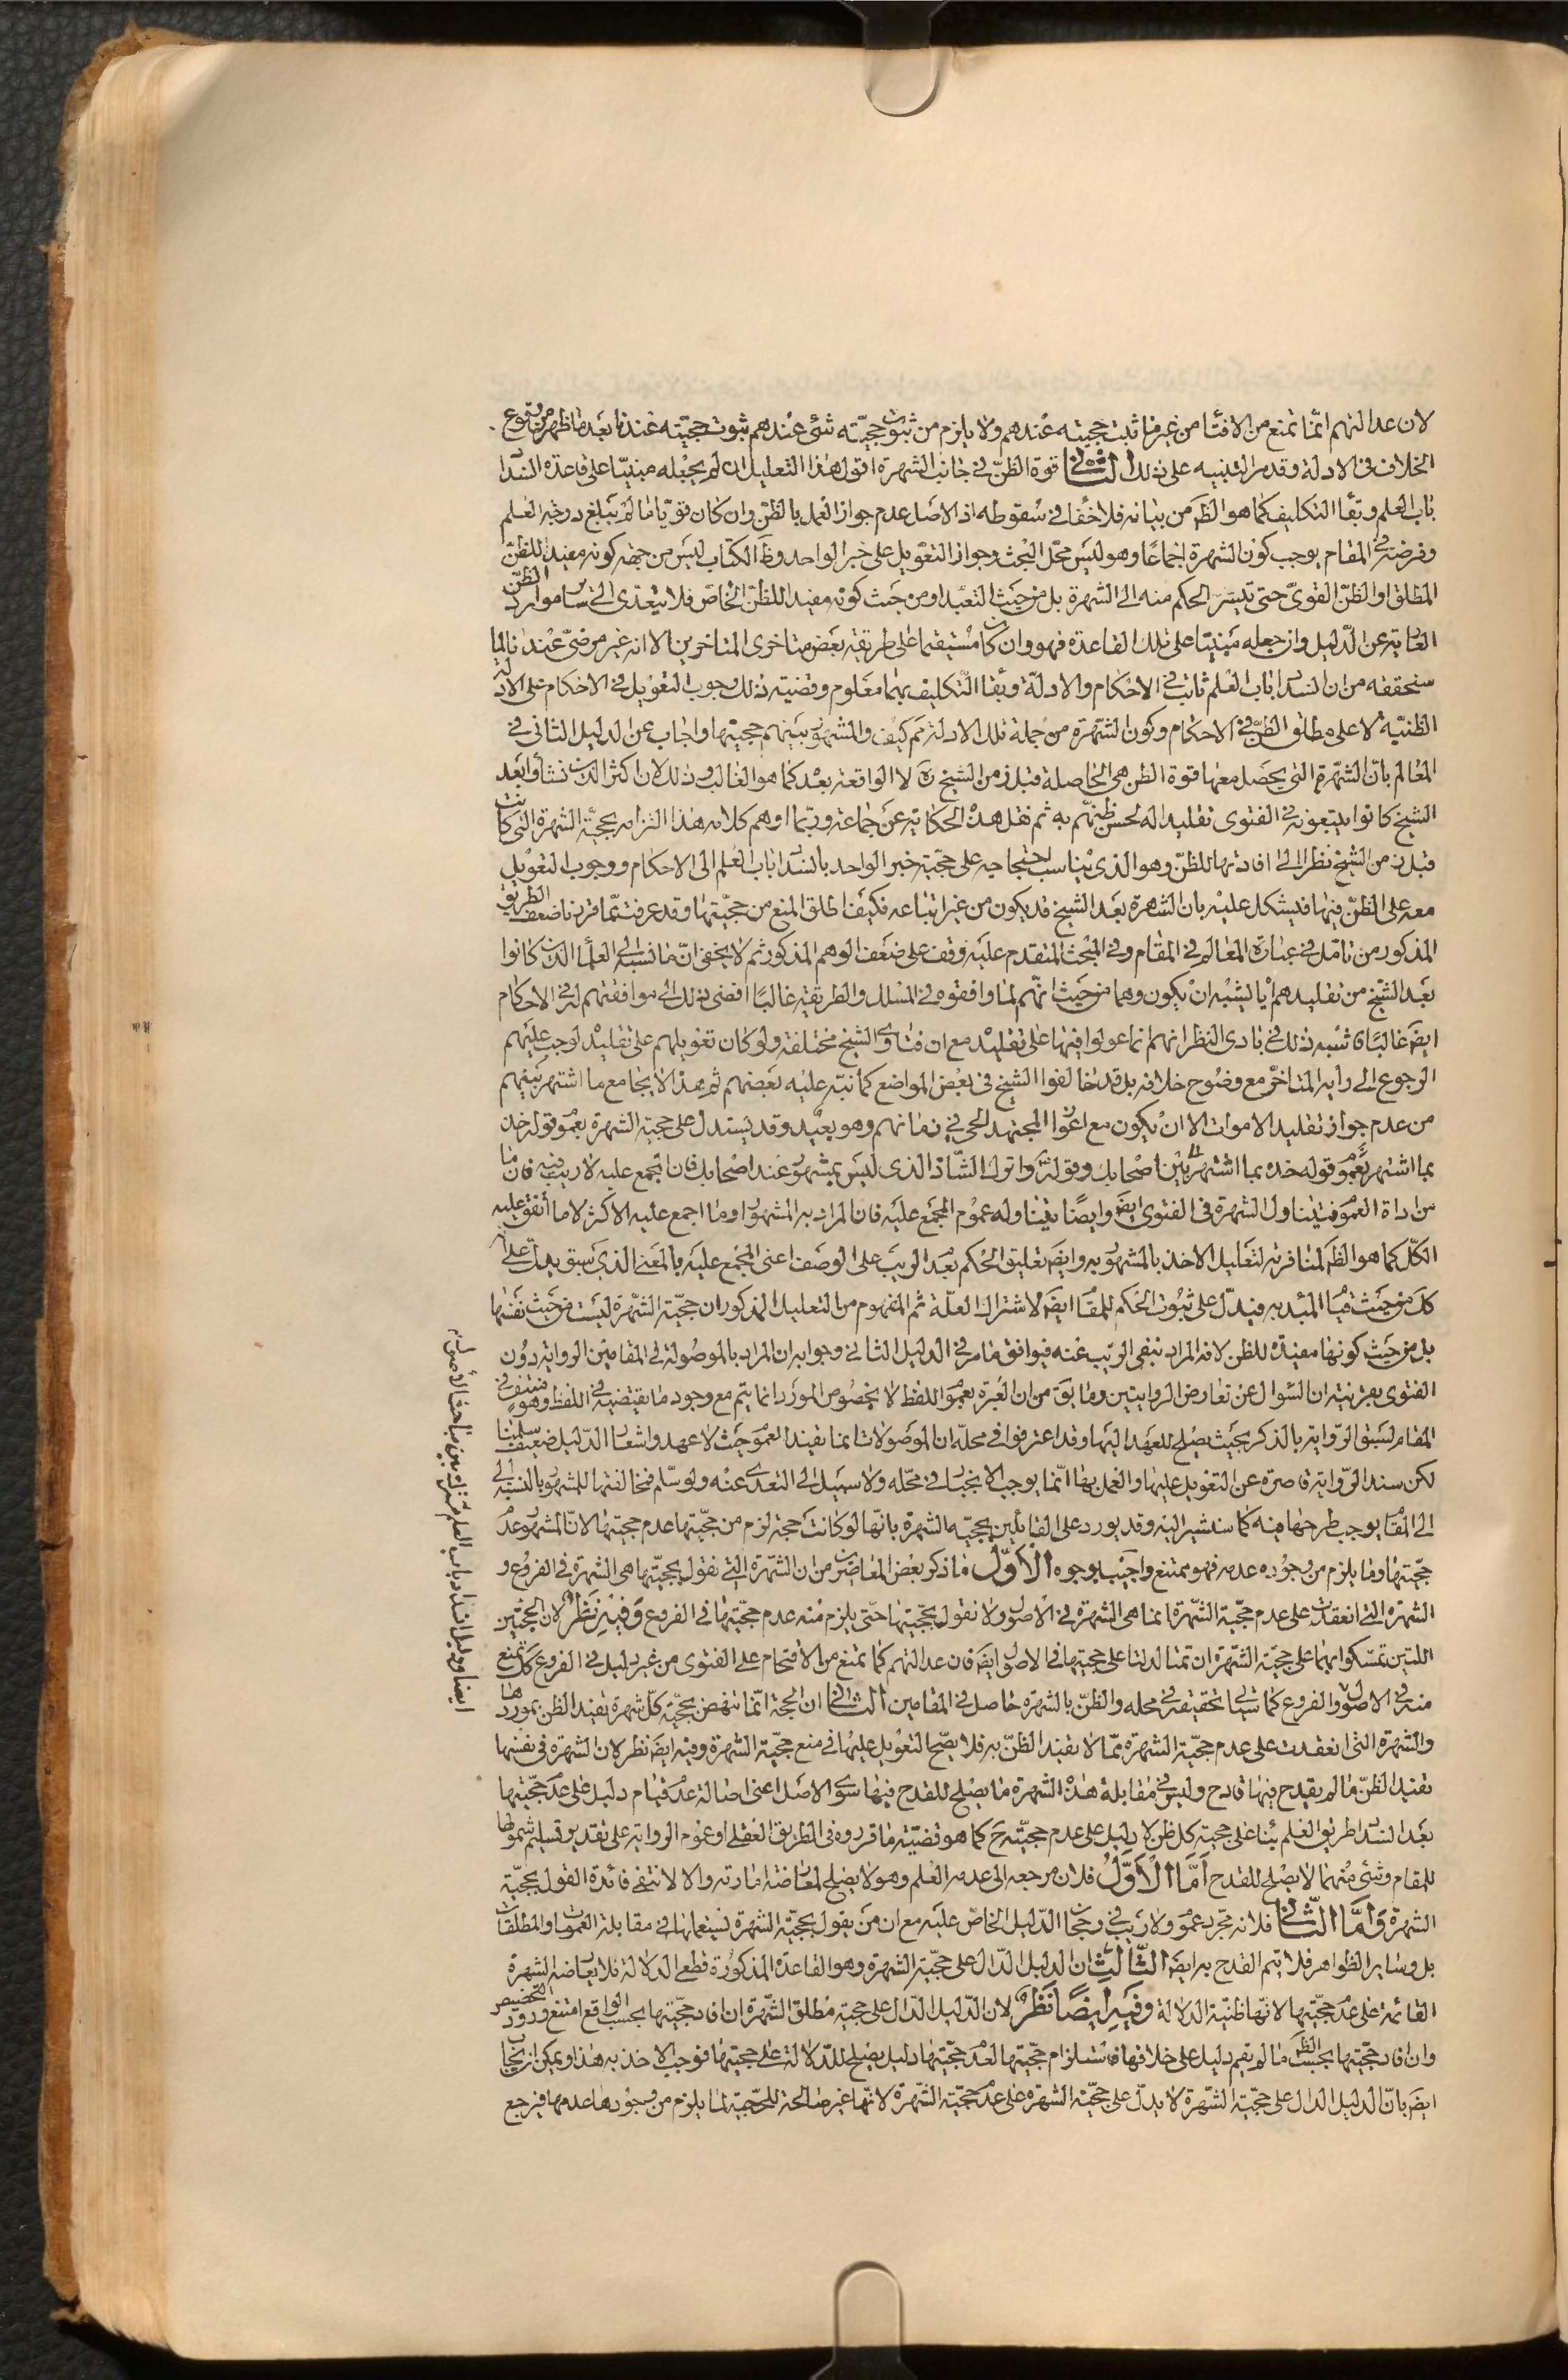 لان عدالتهم انما تمنع من الافتاء من غير ما ثبت حجيته عندهم ولا يلزم من ثبوت حجيّته شئ عندهم ثبوت حجيّته عندنا بعد ما ظهر من وقوع
الخلاف فى الادلة وقد مر التنبيه على ذلك الثانى قوة الظنّ فى جانب الشهرة اقول هذا التعليل ان لم يجعله مبنيّا على قاعدة انسداد
باب العلم وبقاء التكليف كما هو الظَم من بيانه فلا خفاء فى سقوطه اذ الاصل عدم جواز العمل بالظنّ وان كان قويّا ما لم يبلغ درجة العلم
وفرضه فى المقام يوجب كون الشهرة اجماعًا وهو ليس محلّ البحث وجواز التعويل على خبر الواحد وظَم الكتاب ليس من جهة كونه مفيدا للظنّ
المطلق او الظنّ القوىّ حتى يتسرّى الحكم منه الى الشهرة بل من حيث التعبّد او من حيث كونه مفيدا للظنّ الخاصّ فلا يتعدى الى ساير موارد الظنّ
العارية عن الدّليل وان جعله مبنيّا على تلك القاعدة فهو وان كان مستقيما على طريقة بعض متاخرى المتاخرين الا انه غير مرضىّ عندنا لما
سنحققه من ان انسداد باب العلم ثابت فى الاحكام والادلّة وبقاء التّكليف بهما معلوم وقضيته ذلك وجوب التعويل فى الاحكام على الادلة
الظنّيّة لا على مطلق الظنّ فى الاحكام وكون الشّهرة من جملة تلك الادلة مَم كيف والمشهور بينهم عدم حجيتها واجاب عن الدليل الثانى فى
المعالم بانّ الشّهرة التى يحصل معها قوة الظن هى الحاصلة قبل زمن الشيخ ره لا الواقعة بعد كما هو الغالب وذلك لان اكثر الذين نشأوا بعد
الشيخ كانوا يتبعونه فى الفتوى تقليدا له لحسن ظنهم به ثم نقل هذه الحكاية عن جماعة وربّما اوهم كلامه هذا التزامه بحجيّة الشهرة التى كانت
قبل زمن الشيخ نظرا الى افادتها للظنّ وهو الذى يناسب احتجاجه على حجّية خبر الواحد بانسداد باب العلم الى الاحكام ووجوب التعويل
معه على الظنّ فيها فيشكل عليه بان الشهرة بعد الشيخ قد يكون من غير اتباعه فكيف اطلق المنع من حجيّتها وقد عرفت ممّا قررنا ضعف الطريق
المذكور من تامّل فى عبارة المعالم فى المقام وفى المبحث المتقدم عليه وقف على ضعف الوهم المذكور ثم لا يخفى انّ ما نسبه الى العلماء الذين كانوا
بعد الشيخ من تقليدهم اياه يشبه ان يكون وهما من حيث انّهم لما وافقوه فى المسلك والطريقة غالبًا افضى ذلك الى موافقتهم له فى الاحكام
ايضَ غالبًا فاشبه ذلك فى بادى النظر انهم انما عولوا فيها على تقليده مع ان فتاوى الشيخ مختلفة ولو كان تعويلهم على تقليده لوجب عليهم
الرجوع الى رايه المتاخّر مع وضوح خلافه بل قد خالفوا الشيخ فى بعض المواضع كما نبّه عليه بعضهم ثم هذا لا يجامع ما اشتهر بينهم
من عدم جواز تقليد الاموات الا ان يكون مع اعواز المجتهد الحى فى زمانهم وهو بعيد وقد يستدلّ على حجية الشهرة بعموم قوله خذ
بما اشتهر بين اصحابك وقوله واترك الشّاذ الذى ليس بمشهور عند اصحابك فان المجمع عليه لا ريب فيه فان ما
من اداة العموم فيتناول الشهرة فى الفتوى ايضَ وايضًا يتناوله عموم المجمع عليه فان المراد به المشهور او ما اجمع عليه الاكثر لا ما اتفق عليه
الكلّ كما هو الظَم لمنافرته لتعليل الاخذ بالمشهور به وايضَ تعليق الحكم بعدم الريب على الوصف اعنى المجمع عليه بالمعنى الذى سبق يدل على
من حيث فيدّل على ثبوت الحكم للمقام ايضَ لاشتراك العلّة ثم المفهوم من التعليل المذكور ان حجيّة الشّهرة ليست من حيث نفسها
بل من حيث كونها مفيدة للظن لانه المراد بنفى الريب عنه فيوافق ما مر فى الدليل الثانى وجوابه ان المراد بالموصولة فى المقامين الرواية دون
الفتوى بقرينة ان السّوال عن تعارض الروايتين وما يقَ من ان العبرة بعموم اللفظ لا بخصوص المورد انما يتم مع وجود ما يقتضيه فى اللفظ وهو منتف فى
المقام لسبق الرّواية بالذكر بحيث يصلح للعهد اليها وقد اعترفوا فى محلّه ان الموصولات انما تفيد العموم حيث لا عهد واشعار الدّليل ضعيف سلّمنا
لكن سند الرّواية قاصرة عن التعويل عليها والعمل بها انّما يوجب الانجبار فى محّله ولا سبيل الى التعدى عنه ولو سلّم فمخالفتها للمشهور بالنسبة الى
الى المقام يوجب طرحها فيه كما سنشير اليه وقد يورد على القائلين بحجيّه الشهرة بانّها لو كانت حجة لزم من حجّيتها عدم حجيتها لانّ المشهور عدم
حجّيتها وما يلزم من وجوده عدمه فهو ممتنع واجيب بوجوه الاوّل ما ذكر بعض المعاصرين من ان الشّهرة التى نقول بحجيّتها هى الشهرة فى الفروع و
الشهرة التى انعقدت على عدم حجّية الشّهرة انما هى الشهرة فى الاصول ولا نقول بحجّيتها حتّى يلزم منه عدم حجّيتها فى الفروع وفيه نظر لان الحجتين
اللتين تمسّكوا بهما على حجيّة الشّهرة ان تمتا لدلتا على حجيتها فى الاصول ايضَ فان عدالتهم كما تمنع من الاقتحام على الفتوى من غير دليل فى الفروع كذلك تمنع
منه فى الاصول والفروع كما سياتى تحقيقه فى محله والظنّ بالشهرة حاصل فى المقامين الثانى ان الحجة انّما تنهض بحجّية كلّ شهرة تفيد الظن بموردها
والشهرة التى انعقدت على عدم حجيّة الشهرة ممّا لا تفيد الظنّ به فلا يصّح التعويل عليها فى منع حجيّة الشّهرة وفيه ايضَ نظر لان الشهرة فى نفسها
تفيد الظنّ ما لم يقدح فيها قادح وليس فى مقابلة هذه الشهرة ما يصلح للقدح فيها سوى الاصل اعنى اصالة عدم قيام دليل على عدم حجّيتها
بعد انسداد طريق العلم بناء على حجية كل ظن لا دليل على عدم حجيّته حَ كما هو قضيّة ما قرروه فى الطريق العقلى او عموم الرواية على تقدير تسليم شمولها
للمقام وشئ منهما لا يصلح للقدح امّا الاوّل فلان مرجعه الى عدم العلم وهو لا يصلح لمعارضة امارته والا لانتفى فائدة القول بحجيّة
الشهرة وامّا الثّانى فلانه مجرد عموم ولا ريب فى رجحان الدّليل الخاصّ عليه مع ان من يقول بحجيّة الشهرة يستعملها فى مقابلة العمومات والمطلقات
بل وساير الظواهر فلا يتم القدح به ايضَ الثّالث ان الدليل الدّال على حجيّة الشهرة وهو القاعدة المذكورة قطعى الدلالة فلا يعارضه الشهرة
القائمة على عدم حجيّتها لانّها ظنيّة الدلالة وفيه ايضًا نظر لان الدّليل الدّال على حجية مطلق الشّهرة ان افاد حجّيتها بحسب الواقع امتنع ورود التخصيص
وان افاد حجّيتها بحسب الظَم ما لم يقم دليل على خلافها فاستلزام حجّيتها لعدم حجّيتها دليل يصلح للدّلالة على عدم حجيتها فوجب الاخذ به هذا ويمكن ان يجاب
ايضَ بانّ الدليل الدال على حجيّة الشّهرة لا يدلّ على حجيّة الشهرة على عدم حجيّة الشّهرة لانّها غير صالحة للحّجيّة لما يلزم من وجودها عدمها فيرجع